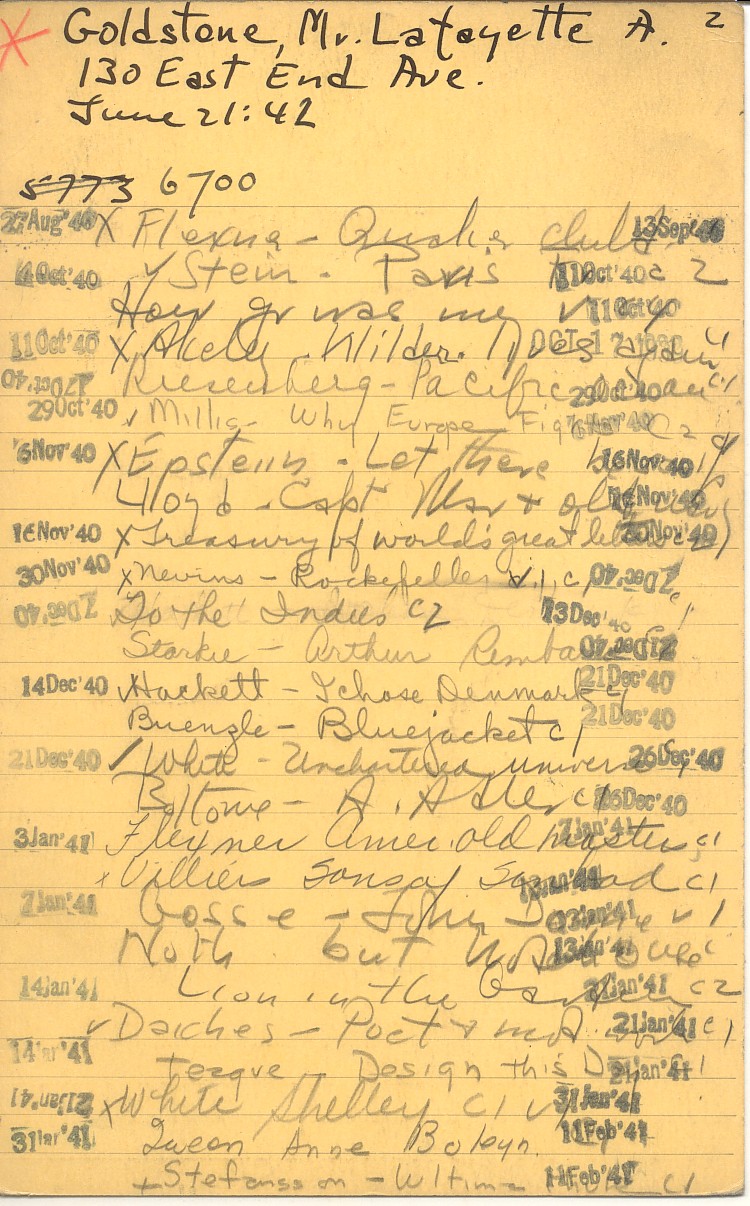 Goldstone, Mr. Lafayette A. 2
130 East End Ave.
June 21:42
5773 6700
27Aug'40 X Flexner - Quaker child 13Sep'40
4Oct'40 ✓ Stein - Paris 11Oct'40 c 2
How gr was my 11Oct'40
11Oct'40 X Akely Wilder lives again c1
17Oct'40 Riesenberg - Pacific Ocean c1 29Oct'40
29Oct'40 ✓ Millis - Why Europe Fights 6Nov'40 c2
6Nov'40 X Epstein - Let there be 16Nov'40
Lloyd - Capt Mar + 16Nov'40
16Nov'40 X Treasury of world's great letters 30Nov'40
30Nov'40 X Nevins - Rockefeller v.1, c1 7Dec'40
7Dec'40 To the Indies c2 13Dec'40
Starkie - Arthur Rimbaud 21Dec'40
14Dec'40 ✓ Hackett - I chose Denmark c1 21Dec'40
Buenzle - Bluejacket c1 21Dec'40
21Dec'40 ✓ White - Unchartered universe 26Dec'40
Bottome - A. Adler c1 26Dec'40
3Jan'41 Flexner Amer. old masters c1 7Jan'41
x Villiers Sons of Sinbad c1 13Jan'41
7Jan'41 Gosse - John Donne v1 13Jan'41
Noth. but 13Jan'41
14Jan'41 Lion in the Garden c2 21Jan'41
✓ Daiches - Poet + mod. world c1 21Jan'41
14Jan'41 Teague - Design this Day c1 21Jan'41
21Jan'41 X White Shelley c1 v1 31Jan'41
31Jan'41 Queen Anne Boleyn. 11Feb'41
+ Stefansson - Ultima Thule c1 11Feb'41